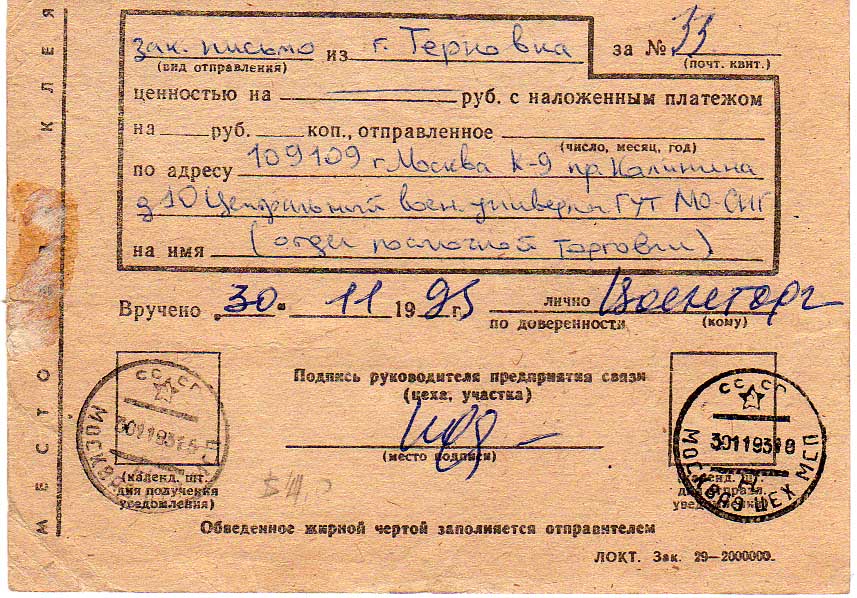 МЕСТО КЛЕЯ
зак. письмо из г. Терновка за № 33
(вид отправления) (почт. квит.)
ценностью на ——— руб. с наложенным платежом
на ___ руб. ___ коп., отправленное
(число, месяц, год)
по адресу 109109 г Москва К-9 пр. Калинина
д 10 Центральный воен. универмаг ГУТ МО-СНГ
на имя (отдел посылочной торговли)
Вручено „30" 11 1993 г. лично Военторг
по доверенности (кому)
Подпись руководителя предприятия связи
(цеха, участка)
(место подписи)
СССР
30119318
МОСКВА
(календ. шт.
дня получения
уведомления)
СССР
30119318
МОСКВА ЦЕХ МСП
Обведенное жирной чертой заполняется отправителем
ЛОКТ. Зак. 29—2000000.